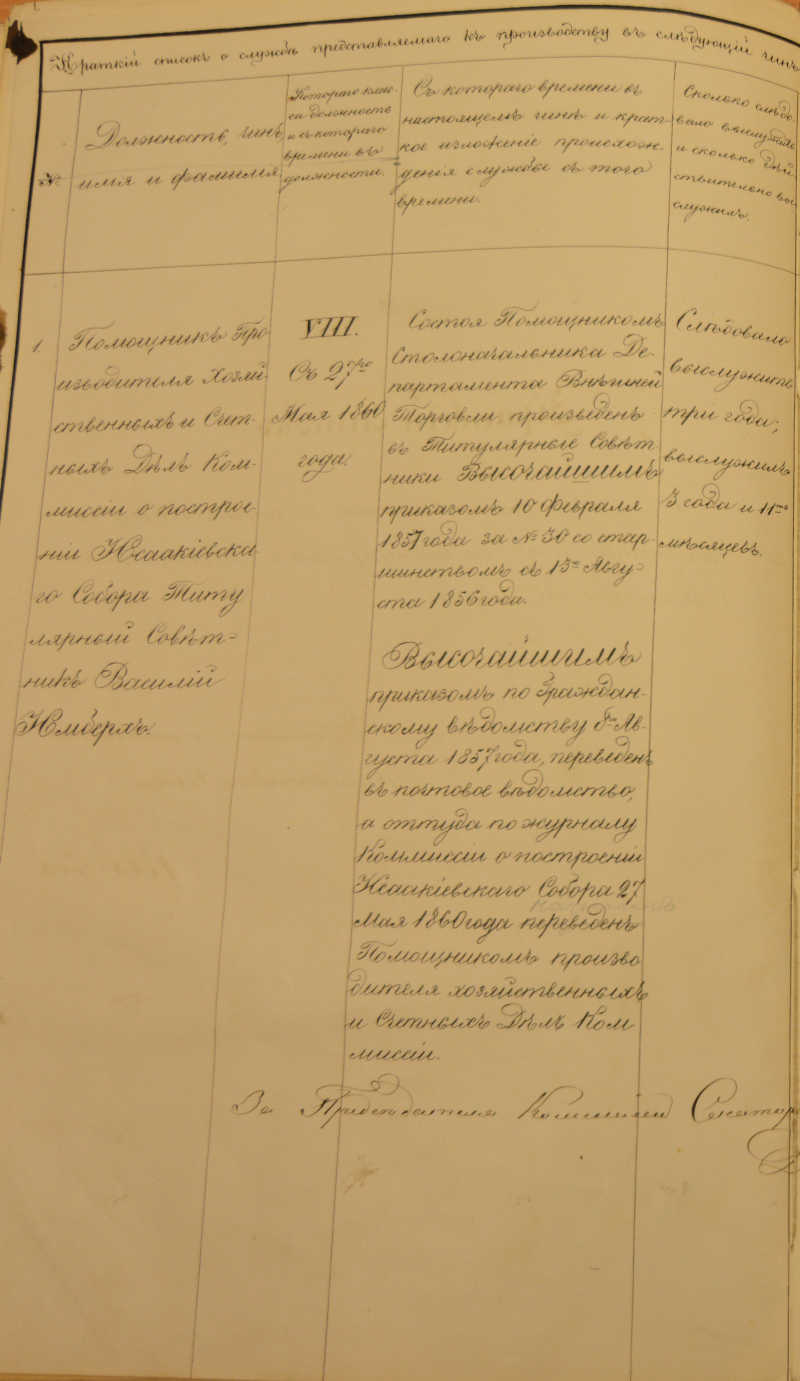 Краткій списокъ о службѣ представляемаго къ производству въ слѣдующій чинъ
№
Должность, чинъ,
имя и фамилія
Котораго клас-
са должность
и съ котораго
времени въ
должности.
Съ котораго времени въ
настоящемъ чинѣ и крат-
кое изложеніе происхож-
денія службы съ того
времени.
Сколько слѣдо-
вало выслужить
и сколько дѣй-
ствительно вы-
служилъ.
1.
Помощникъ Про
изводителя Хозяй
ственныхъ и Счет-
ныхъ Дѣлъ Ком-
мисіи о построе-
ніи Исаакіевска
го Собора Титу
лярный Совѣт-
никъ Василій
Имбергъ.
VIII.
Съ 27го
Мая 1860
года.
Состоя Помощникомъ
Столоначальника Де-
партамента Внѣшней
Торговли, произведенъ
въ Титулярные Совѣт
ники Высочайшимъ
приказомъ 10 Февраля
1857 года за № 30 со стар-
шинствомъ съ 15го Авгу-
ста 1856 года.
Высочайшимъ
приказомъ по Граждан-
скому вѣдомству 8го Ав-
густа 1857 года, переведенъ
въ почтовое вѣдомство,
а оттуда по журналу
Коммисіи о построеніи
Исаакіевскаго Собора 27
Мая 1860 года переведенъ
Помощникомъ произво
дителя хозяйственныхъ
и Счетныхъ Дѣлъ Ком
мисіи.
Слѣдовало
выслужить
три года;
выслужилъ
3 года и 11ть
мѣсяцевъ.
За Предсѣдателя Коммисіи Сенаторъ